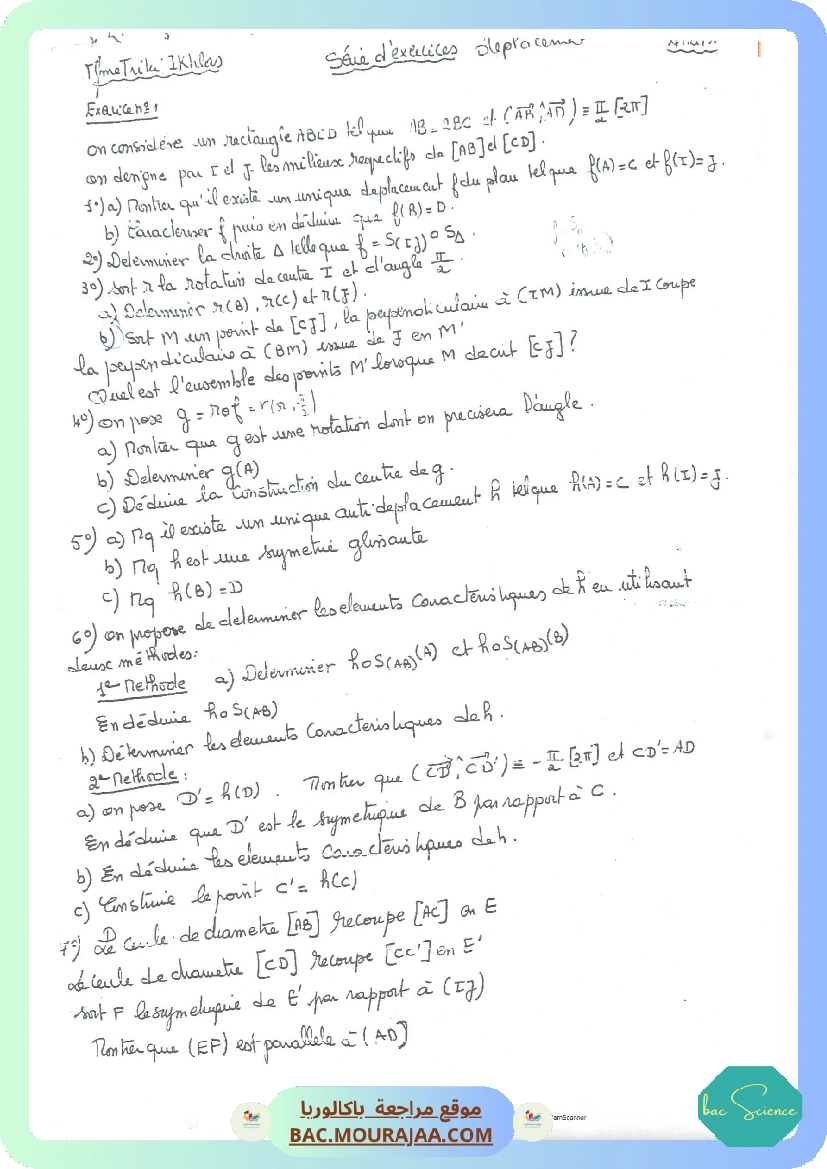 Mme Triki Ikhlas
Série d'exercices déplacement
Exercice n°1
On considère un rectangle ABCD tel que AB = 2BC et (AB, AD) ≡ π/2 [2π]
on designe par I et J les milieux respectifs de [AB] et [CD].
1°) a) Montrer qu'il existe un unique deplacement f du plan tel que f(A)=C et f(I)=J.
b) Caracteriser f puis en déduire que f(B)=D.
2°) Determiner la droite Δ telle que f = S(IJ) o SΔ.
3°) soit r la rotation de centre I et d'angle π/2.
a) Determiner r(B), r(C) et r(J).
b) Soit M un point de [CJ], la perpendiculaire à (IM) issue de I coupe
la perpendiculaire à (BM) issue de J en M'
Quel est l'ensemble des points M' lorsque M decrit [CJ]?
4°) on pose g = rof = r(Ω, π/2)
a) Montrer que g est une rotation dont on precisera l'angle.
b) Determiner g(A)
c) Déduire la Construction du centre de g.
5°) a) Mq il existe un unique anti-deplacement h tel que h(A)=C et h(I)=J.
b) Mq h est une symetrie glissante
c) Mq h(B)=D
6°) on propose de determiner les elements Caracteristiques de h en utilisant
deux méthodes:
1e Methode a) Determiner hoS(AB)(A) et hoS(AB)(B)
En déduire hoS(AB)
b) Déterminer les elements Caracteristiques de h.
2e Methode:
a) on pose D'= h(D). Montrer que (CD, CD') ≡ -π/2 [2π] et CD'=AD
En déduire que D' est le symetrique de B par rapport à C.
b) En déduire les elements Caracteristiques de h.
c) Construire le point C'= h(C)
7°) Le Cercle de diametre [AB] recoupe [AC] en E
Le cercle de diametre [CD] recoupe [CC'] en E'
soit F le symetrique de E' par rapport à (IJ)
Montrer que (EF) est parallele à (AD)
CamScanner
موقع مراجعة باكالوريا
BAC.MOURAJAA.COM
bac Science